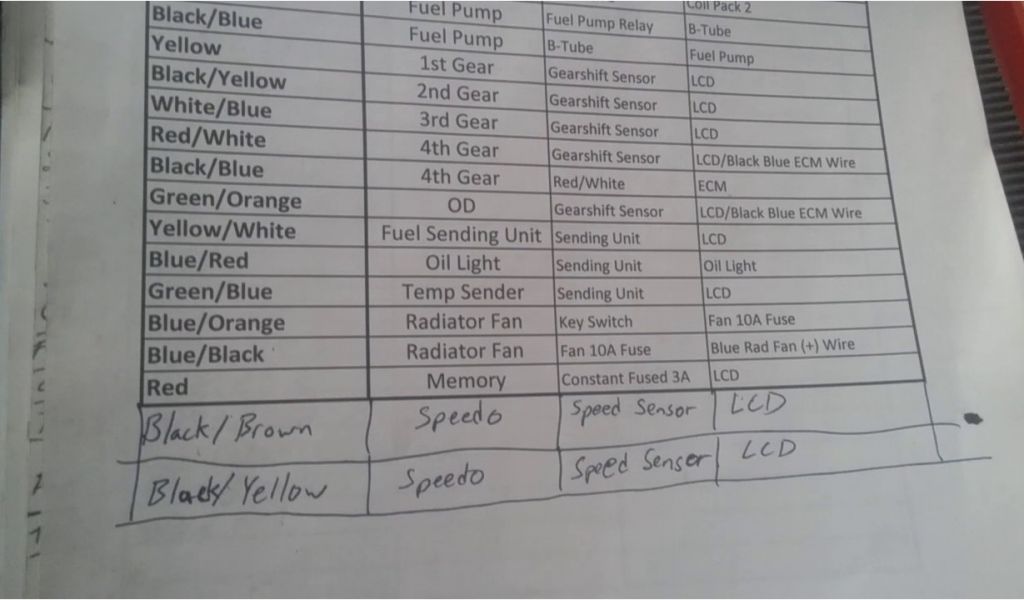 Coil Pack 2
Fuel Pump Fuel Pump Relay B-Tube
Black/Blue Fuel Pump B-Tube Fuel Pump
Yellow 1st Gear Gearshift Sensor LCD
Black/Yellow 2nd Gear Gearshift Sensor LCD
White/Blue 3rd Gear Gearshift Sensor LCD
Red/White 4th Gear Gearshift Sensor LCD/Black Blue ECM Wire
Black/Blue 4th Gear Red/White ECM
Green/Orange OD Gearshift Sensor LCD/Black Blue ECM Wire
Yellow/White Fuel Sending Unit Sending Unit LCD
Blue/Red Oil Light Sending Unit Oil Light
Green/Blue Temp Sender Sending Unit LCD
Blue/Orange Radiator Fan Key Switch Fan 10A Fuse
Blue/Black Radiator Fan Fan 10A Fuse Blue Rad Fan (+) Wire
Red Memory Constant Fused 3A LCD
Black/Brown Speedo Speed Sensor LCD
Black/Yellow Speedo Speed Sensor LCD